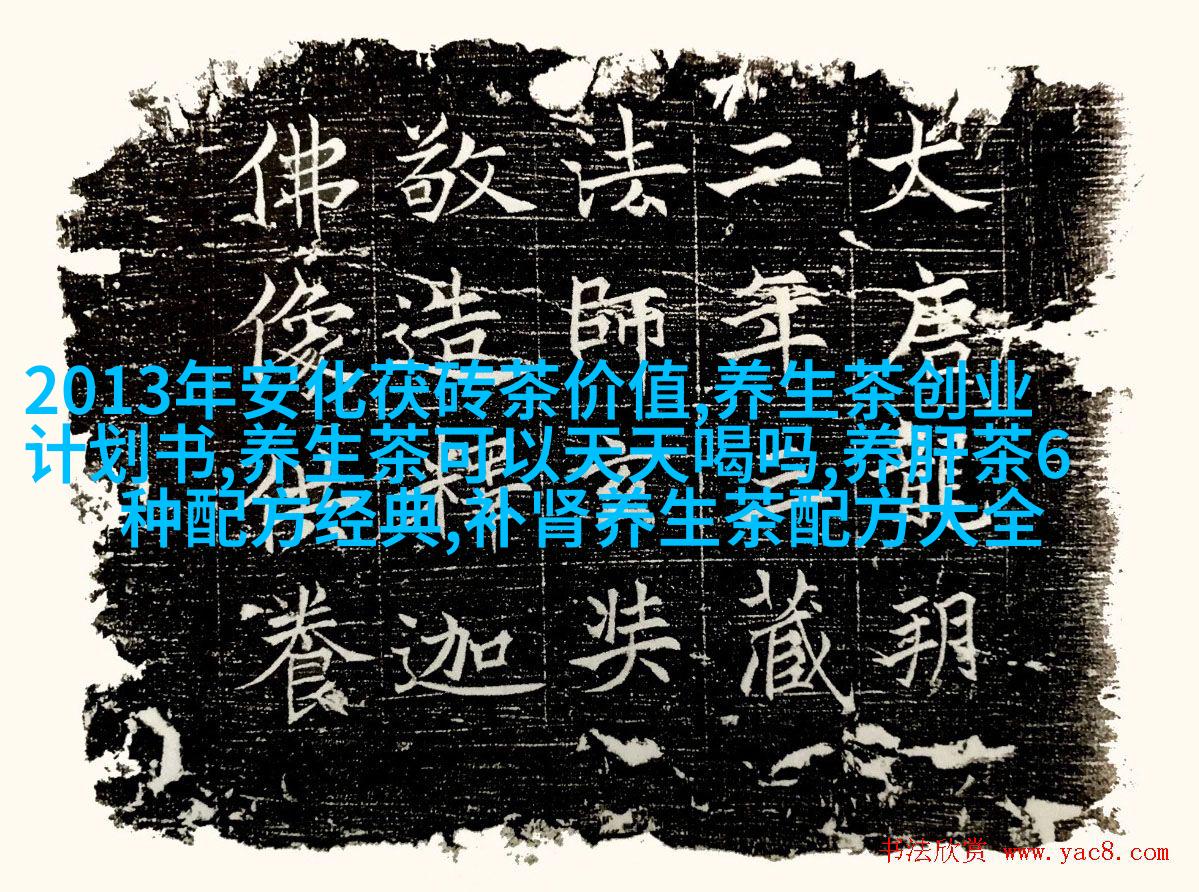 2013年安化茯砖茶价值,养生茶创业
计划书,养生茶可以天天喝吗,养肝茶6
种配方经典,补肾养生茶配方大全
大唐龍朔
二年三藏
法師玄奘
敬造釋迦
佛像供養
书法欣赏 www.yac8.com